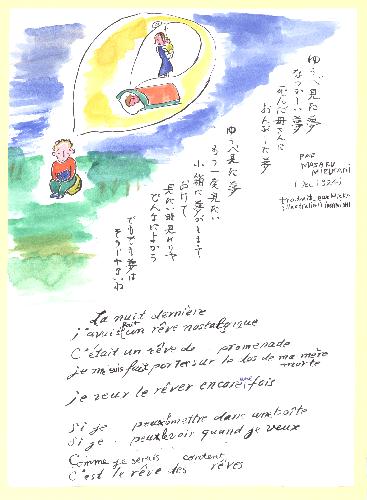 ゆうべ見た夢
なつかしい夢
死んだ母さんに
おんぶした夢
ゆうべ見た夢
もう一度見たい
小箱に夢が
おけて
見たい時見れりゃ
どんなによかろ
でもでも夢は
PAR
MASARU
MIZUKAMI
traduit par
illustration
La nuit dernière
j'avais fait un rêve nostalgique
C'était un rêve de promenade
je me suis fait porter sur le dos de ma mère
morte
je veux le rêver encore une fois
Si je peux mettre dans une boîte
Si je peux le voir quand je veux
Comme je serais content
C'est le rêve des rêves